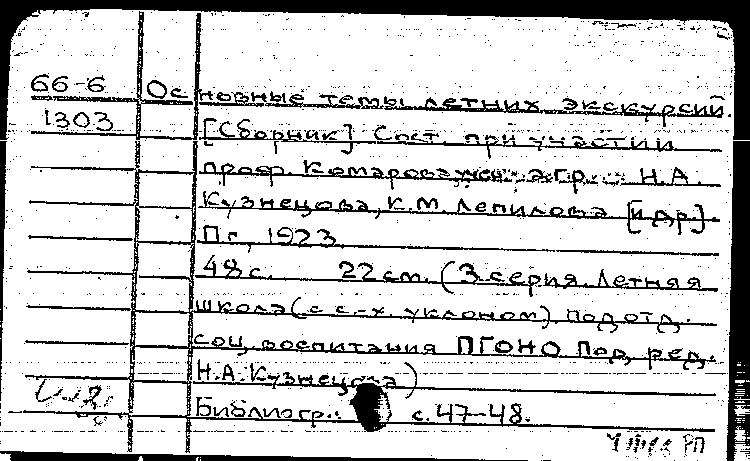 66-6 Основные темы летних экскурсий.
1303 [Сборник] Сост. при участии
проф. Комарова, агр. Н.А.
Кузнецова, К.М. Лепилова [и др].
Пг, 1923.
48 с. 22 см. (3 серия. Летняя
школа (с с.-х. уклоном). Под отд.
соц. воспитания ПГОНО Под. ред.
Н.А. Кузнецова)
Библиогр.: с. 47-48.